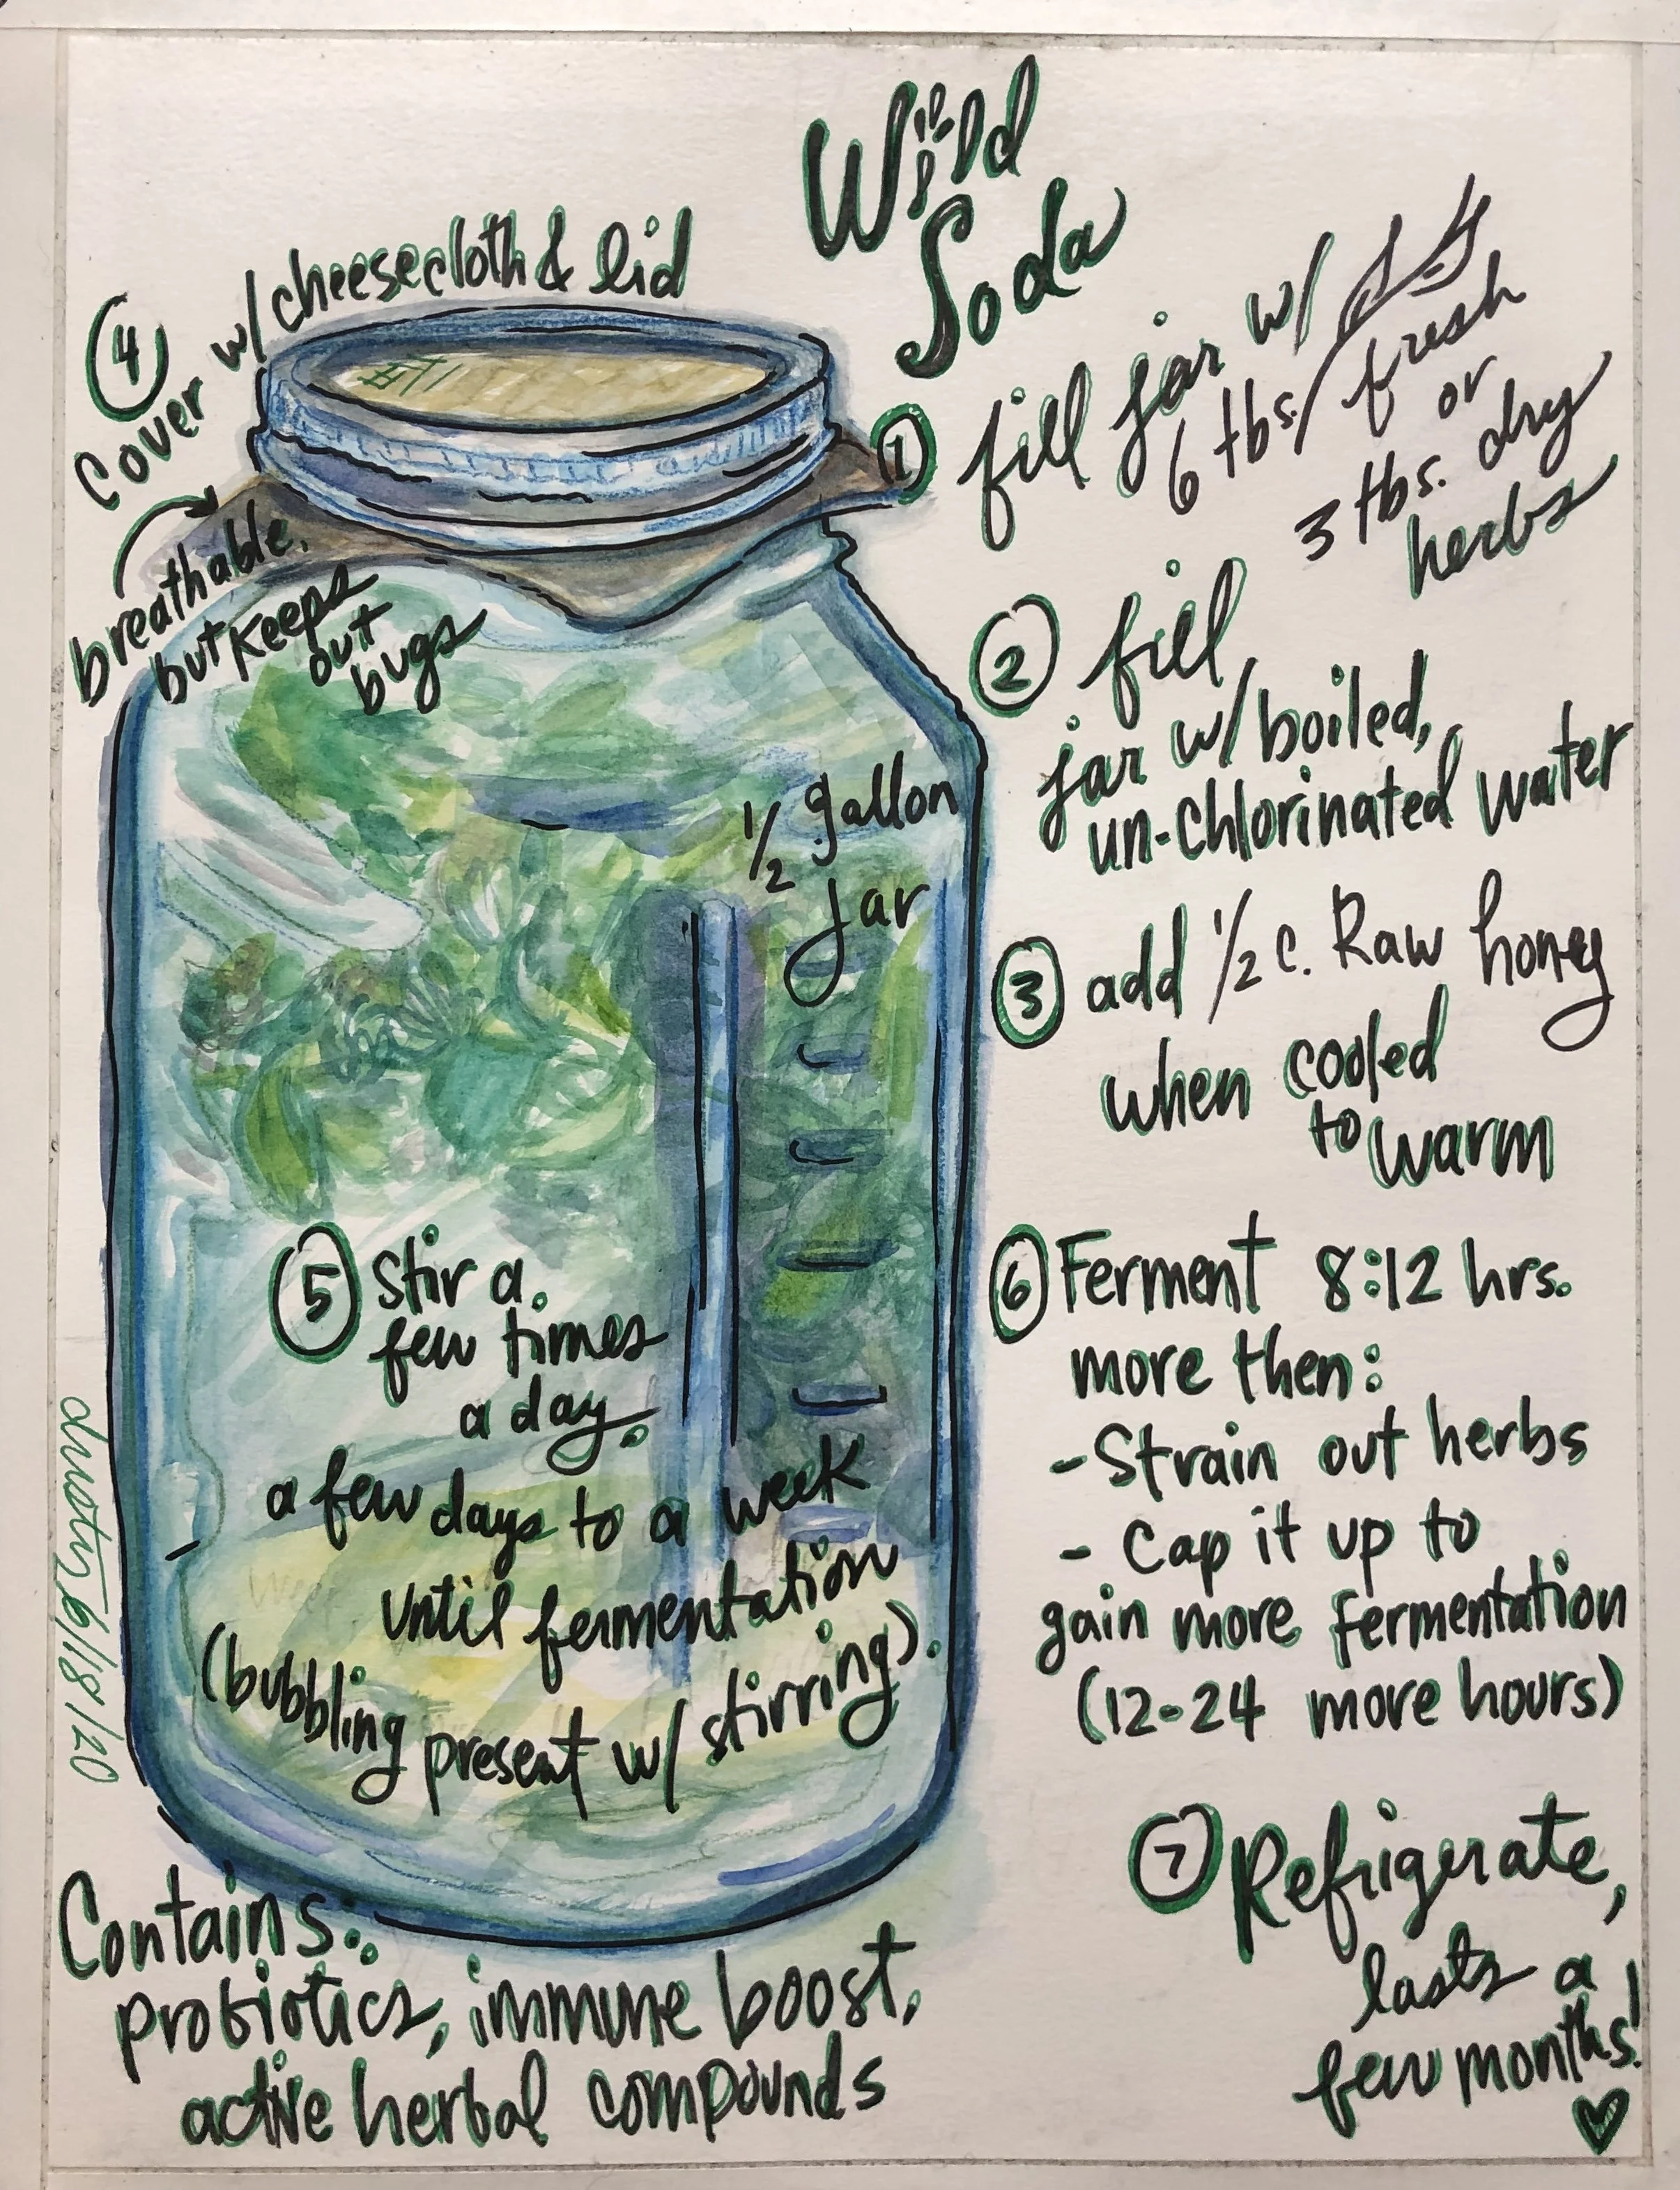 Wild
Soda
① fill jar w/
6 tbs. / fresh
or
3 tbs. dry
herbs
② fill
jar w/ boiled,
un-chlorinated water
③ add 1/2 c. Raw honey
when cooled
to warm
④
Cover w/ cheesecloth & lid
breathable,
but keeps
out
bugs
1/2 gallon
jar
⑤ Stir a
few times
a day.
a few days to a week
until fermentation
(bubbling present w/ stirring).
⑥ Ferment 8:12 hrs.
more then:
- Strain out herbs
- Cap it up to
gain more fermentation
(12-24 more hours)
⑦ Refrigerate,
lasts a
few months!
Contains:
probiotics, immune boost,
active herbal compounds
6/18/20